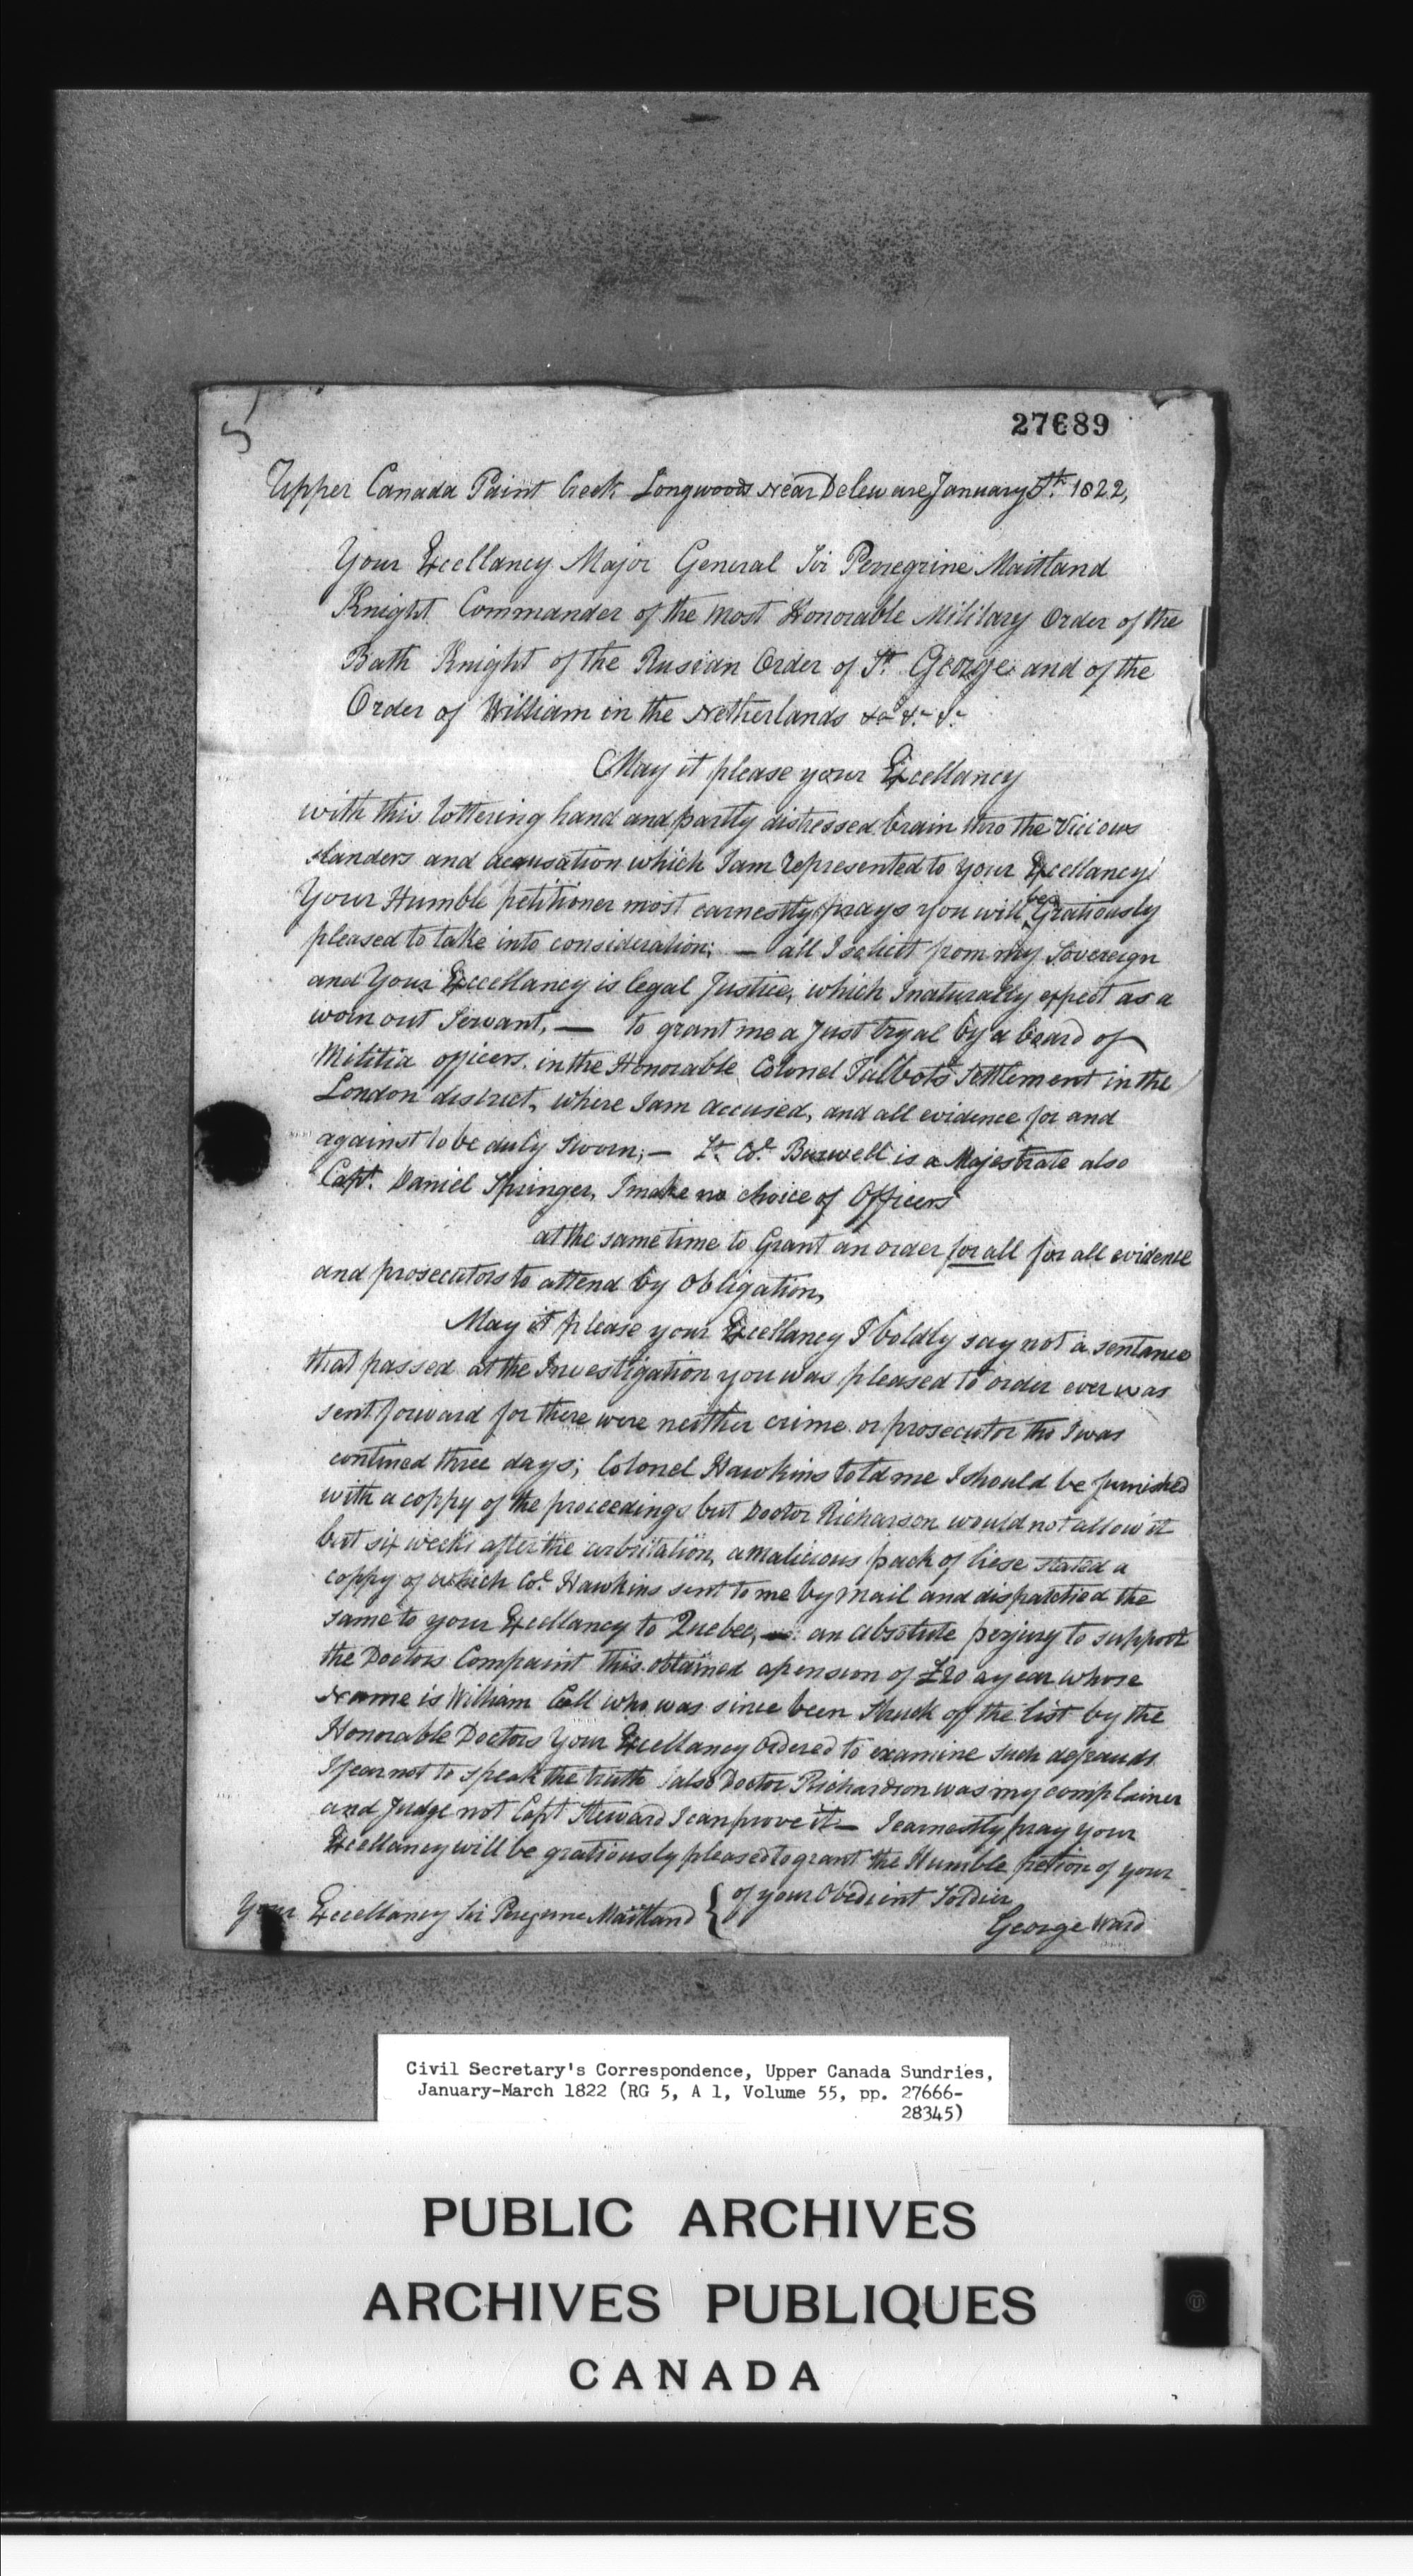 5
27689
Upper Canada Paint Creek Longwoods Near Deleware January 5th. 1822,
Your Excellancy Major General Sir Perregrine Maitland
Knight Commander of the most Honorable Military Order of the
Bath Knight of the Rusian Order of St. George and of the
Order of William in the Netherlands &c &c &c
May it please your Excellancy
with this tottering hand and partly distressed brain thro the Vicious
slanders and acqusation which I am represented to your Excellancy
Your Humble petitioner most earnestly prays you will be Gratiously
pleased to take into consideration; — all I solicit from my Sovereign
and Your Excellancy is legal Justice, which I naturally expect as a
worn out Servant, — to grant me a Just tryal by a board of
Militia officers. in the Honorable Colonel Talbots Settlement in the
London district, where I am accused, and all evidence for and
against to be duly Sworn; — Lt. Col. Burwell is a Majestrate also
Capt. Daniel Springer, I make no choice of Officers
at the same time to Grant an order for all for all evidence
and prosecutors to attend by Obligation,
May it please your Excellancy I boldly say not a sentance
that passed at the Investigation you was pleased to order ever was
sent forward for there were neither crime or prosecutor tho I was
contined three days; Colonel Hawkins told me I should be furnished
with a coppy of the proceedings but Doctor Richarson would not allow it
but six weeks after the arbitation, a malicious pack of liese stated a
coppy of which Col. Hawkins sent to me by mail and dispatched the
same to your Excellancy to Quebec, — an absolute perjury to support
the Doctors Compaint this obtained a pension of £20 a year whose
Name is William Call who was since been Struck off the list by the
Honorable Doctors Your Excellancy Ordered to examine such defrauds
I fear not to speak the truth also Doctor Richardson was my complainer
and Judge not Capt Steward I can prove it — I earnestly pray your
Excellancy will be gratiously pleased to grant the Humble petion of your
of your Obedient Soldier
Your Excellancy Sir Peregrine Maitland
George Ward
Civil Secretary's Correspondence, Upper Canada Sundries,
January-March 1822 (RG 5, A 1, Volume 55, pp. 27666-
28345)
PUBLIC ARCHIVES
ARCHIVES PUBLIQUES
CANADA